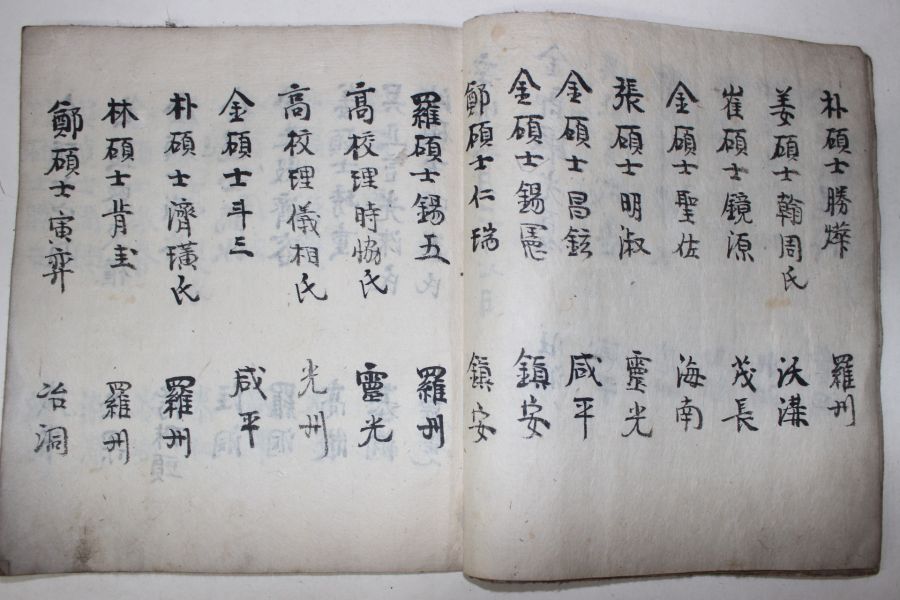 朴碩士勝燁 羅州
姜碩士翰周氏 沃溝
崔碩士鏡源 茂長
金碩士聖佐 海南
張碩士明淑 靈光
金碩士昌鉉 咸平
金碩士錫憲 鎮安
鄭碩士仁瑞 鎮安
羅碩士錫五 羅州
高校理時協氏 靈光
高校理儀相氏 光州
金碩士斗三 咸平
朴碩士濟璜氏 羅州
林碩士肯圭 羅州
鄭碩士寅羿 冶洞